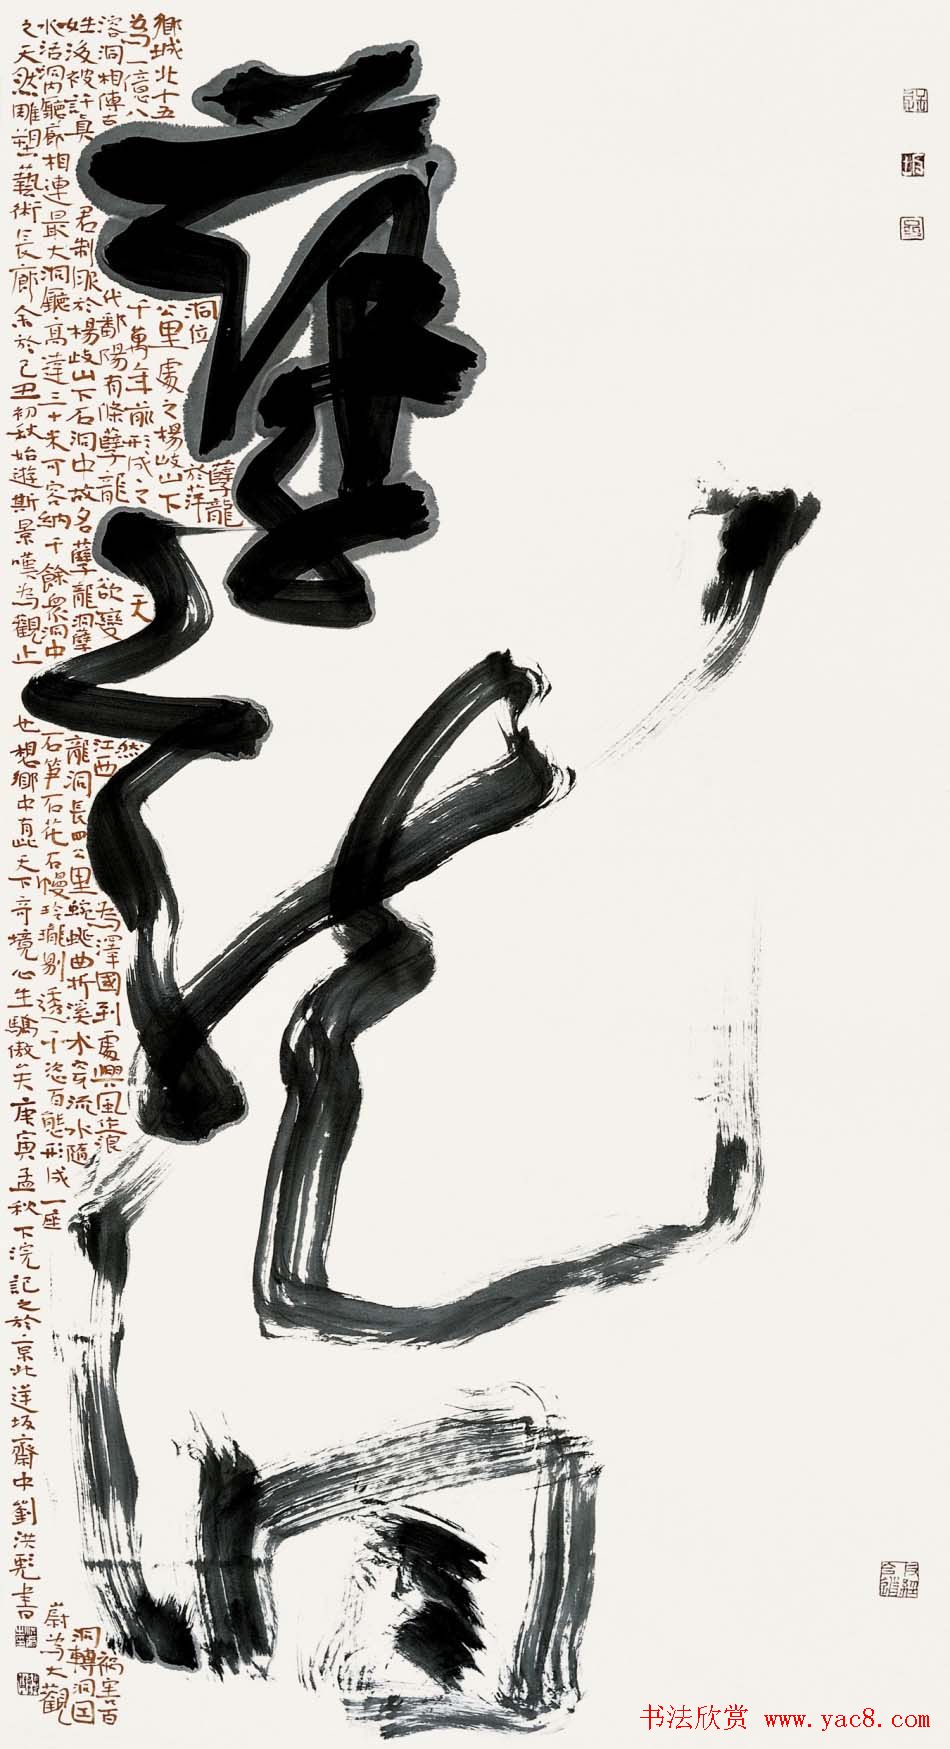 孽龍洞
孽龍
洞位於萍
鄉城北十五公里處之楊岐山下
為一億八千萬年前形成之天然
溶洞相傳古代鄱陽有條孽龍欲變江西為澤國到處興風作浪禍害百
姓後被許真君制服於楊岐山下石洞中故名孽龍洞孽龍洞長四公里蜿蜒曲折溪水穿流水隨洞轉洞因
水活洞內廳廊相連最大洞廳高達三十米可容納千餘眾洞中石筍石花石幔玲瓏剔透千姿百態形成一座蔚為大觀
之天然雕塑藝術長廊余於己丑初秋始遊斯景嘆為觀止也想鄉中有此天下奇境心生驕傲矣庚寅孟秋下浣記之於京北逆坂齋中劉洪彪書
书法欣赏 www.yac8.com